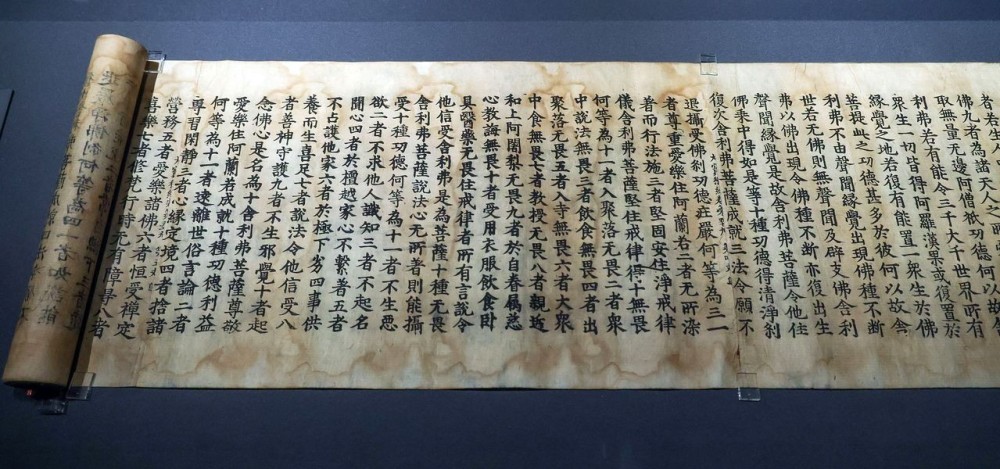 取無量无邊阿僧祇功德何以故
利弗若有能令三千大千世界所有
眾生一切皆得阿羅漢果或復置於
緣覺之地若復有能置一眾生於佛
菩提此之功德甚多於彼何以故舍
利弗不由聲聞緣覺出現佛種不斷
世若无佛則無聲聞及辟支佛舍利
弗以佛出現令佛種不斷亦復出生
聲聞緣覺是故舍利弗菩薩令他住
佛乘中得如是等十種功德得清淨剎
復次舍利弗菩薩成就三法令願不
退攝受佛剎功德莊嚴何等為三一
者尊重愛樂住阿蘭若二者无所染
著而行法施三者堅固安住淨戒律
儀舍利弗菩薩堅住戒律得十無畏
何等為十一者入聚落无畏二者眾
中說法無畏三者飲食無畏四者出
聚落无畏五者入寺無畏六者大眾
中食無畏七者教授无畏八者親近
和上阿闍梨无畏九者於自眷屬慈
心教誨無畏十者受用衣服飲食卧
具醫藥无畏住戒律者所有言說令
他信受舍利弗是為菩薩十種无畏
舍利弗菩薩說法心无所著則能攝
受十種功德何等為十一者不生惡
欲二者不求他人識知三者不起名
聞心四者於檀越家心不繫著五者
不占護他家六者於極下劣四事供
養而生喜足七者說法令他信受八
者善神守護九者不生邪覺十者起
念佛心是名為十舍利弗菩薩尊敬
愛樂住阿蘭若成就十種功德利益
何等為十一者遠離世俗言論二者
尊習閑靜三者心緣定境四者捨諸
營務五者愛樂諸佛六者恒受禪定
喜樂七者修梵行時无有障㝵八者